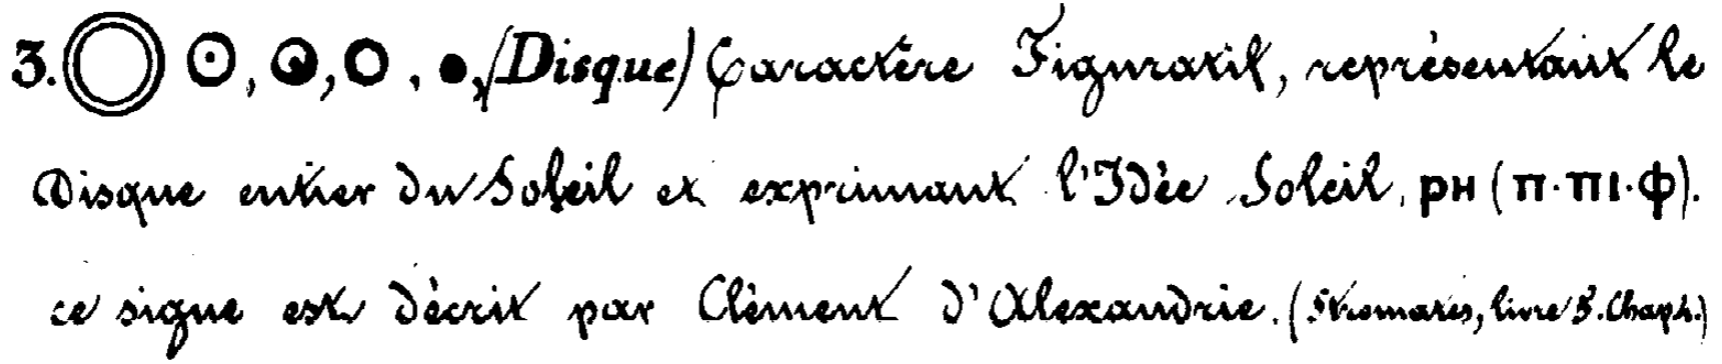 3. ◎ ☉, ☉, ○, ●, (Disque) Caractère Figuratif, représentant le
Disque entier du Soleil et exprimant l'Idée Soleil, ⲣⲏ (ⲡ·ⲡⲓ·ⲫ).
ce signe est décrit par Clément d'Alexandrie. (Stromates, livre 5. Chap 4.)